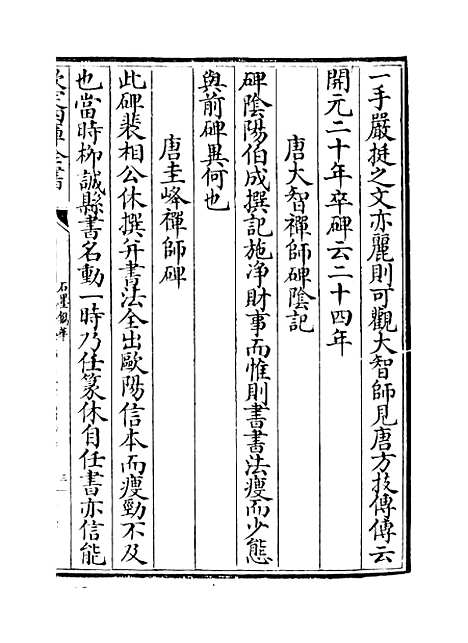 一手嚴挺之文亦麗則可觀大智師見唐方技傳傳云
開元二十年卒碑云二十四年
唐大智禪師碑陰記
碑陰陽伯成撰記施淨財事而惟則書書法瘦而少態
與前碑異何也
唐圭峰禪師碑
此碑裴相公休撰并書法全出歐陽信本而瘦勁不及
也當時柳誠縣書名動一時乃任篆休自任書亦信能
欽定四庫全書
石墨鐫華